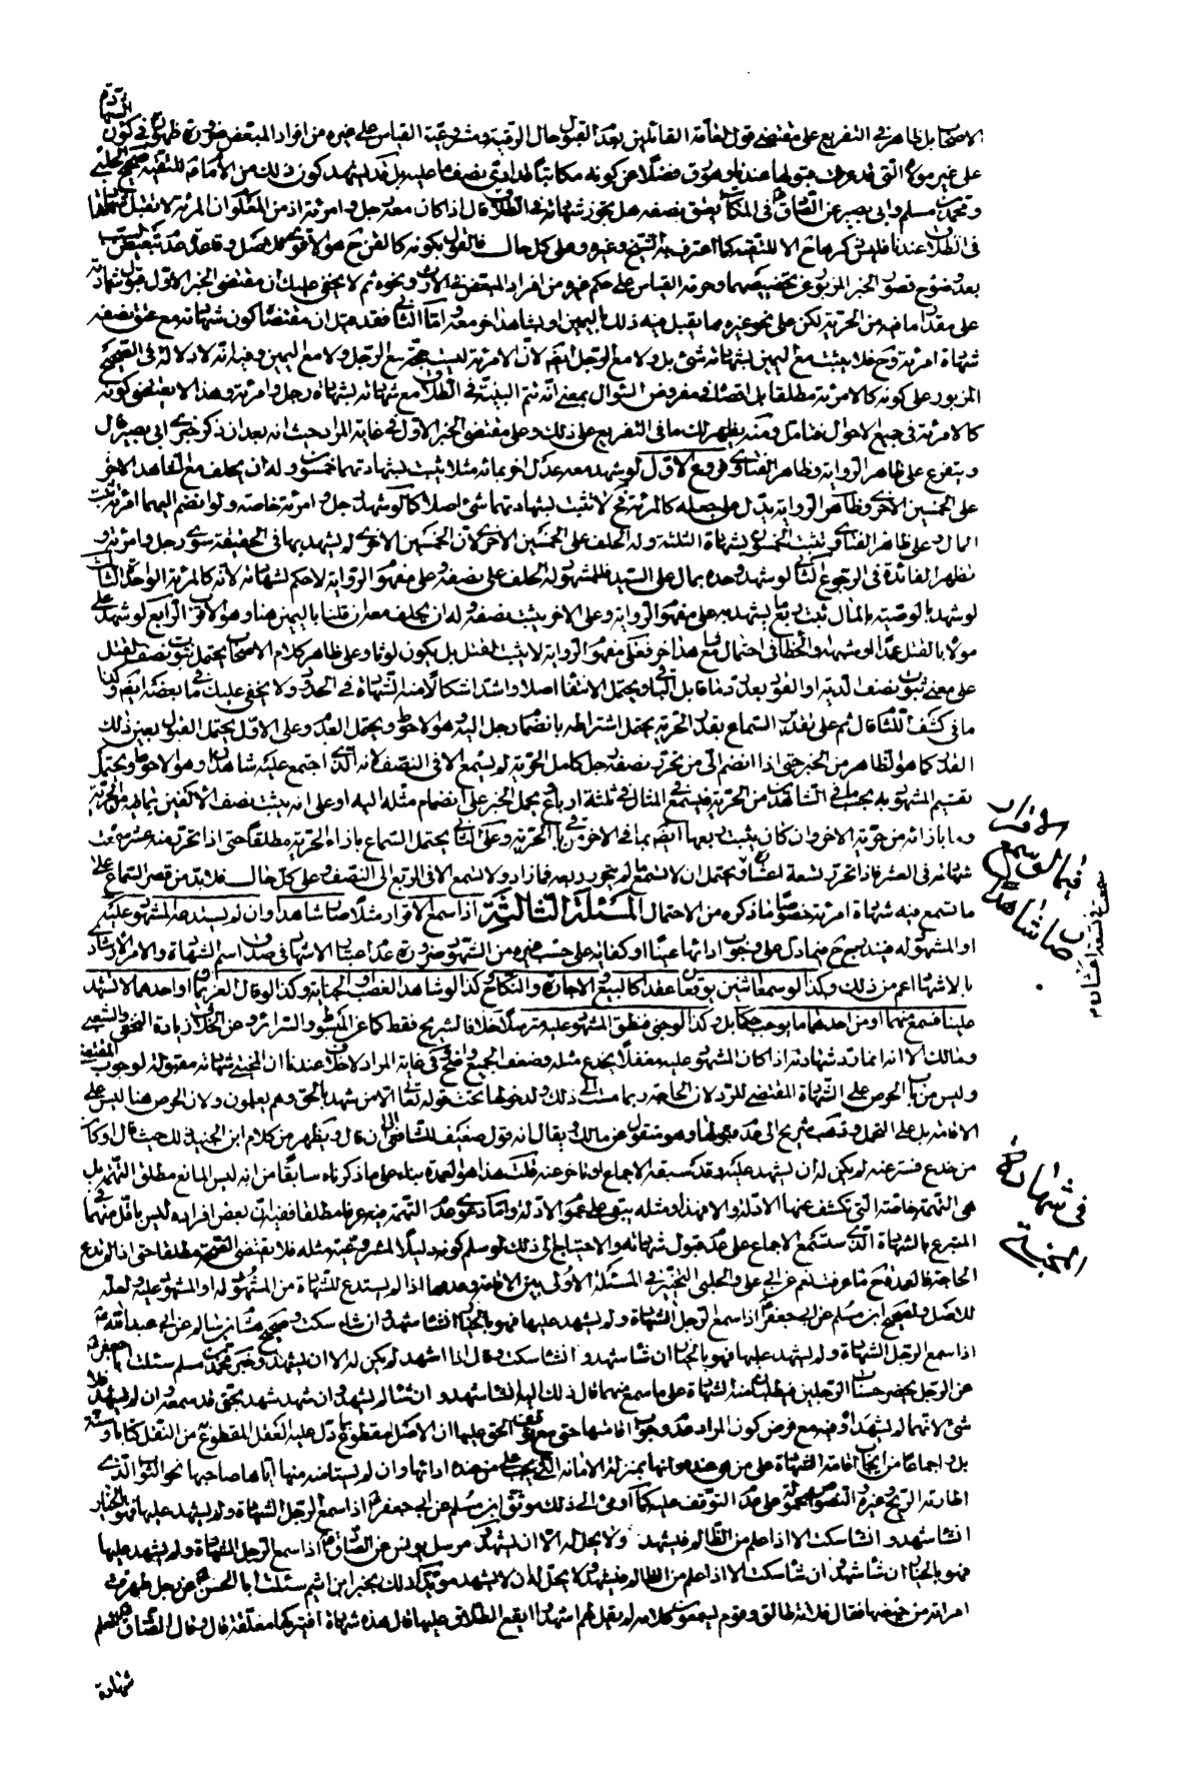 الاصحاب بل ظاهره في التفريع على مقتضى قول العامة القائلين بعدم القبول حال الرقية ومشروعية القياس على غيره من افراد المبعض ضرورة ظهوره في كون
على غير مولاه التي قد عرفت قبولها عندنا وهو رق فضلا عن كونه مكاتبا قد ادى نصف ما عليه بل قد يشهد كون ذلك من الامام للتقية صحيح الحلبي
ومحمد بن مسلم وابي بصير عن الصادق في المكاتب يعتق نصفه هل تجوز شهادته في الطلاق قال اذا كان معه رجل وامرئة اذ من المعلوم ان المرئة لا تقبل شهادتها
في الطلاق عندنا فليس ذكرها ح الا للتقية كما اعترف به الشيخ وغيره وعلى كل حال فالقول بكونه كالقن ح هو الاقوى
بعد وضوح قصور الخبر المزبور عن تخصيصهما وحرمة القياس على حكم غيره من افراد المبعض في الارث ونحوه ثم لا يخفى عليك ان مقتضى الخبر الاول قبول شهادته
على مقدار ما فيه من الحرية لكن على نحو غيره مما يقبل فيه ذلك باليمين او بشاهد اخر معه واما الثاني فقد قيل ان مقتضاه كون شهادته مع عتق نصفه
شهادة امرئة وح فلا يثبت مع اليمين بشهادته شئ بل ولا مع الرجل ايضا لان الامرئة ليست حجة مع الرجل ولا مع اليمين وفيه انه لا دلالة في الصحيح
المزبور على كونه كالامرئة مطلقا بل اقصاه في مفروض السؤال بمعنى انه تتم البينة في الطلاق مع شهادته بشهادة رجل وامرئة وهذا لا يقتضي كونه
كالامرئة في جميع الاحوال فتامل ومنه يظهر لك ما في التفريع على ذلك وعلى مقتضى الخبر الاول في غاية المراد حيث انه بعد ان ذكر خبري ابي بصير قال
ويتفرع على ظاهر الرواية وظاهر الفتاوى فروع الاول لو شهد معه عدل اخر بمائة مثلا ثبت بشهادتهما خمسون وله ان يحلف مع الشاهد الاخر
على الخمسين الاخرى وظاهر الرواية يدل على جعله كالمرئة فح لا تثبت بشهادتهما شئ اصلا كما لو شهد رجل وامرئة خاصة ولو انضم اليهما امرئة ثبت
المال وعلى ظاهر الفتاوى تثبت الخمسون بشهادة الثلثة وله الحلف على الخمسين الاخرى لان الخمسين الاخرى لم يشهد بها في الحقيقة سوى رجل وامرئة و
تظهر الفائدة في الرجوع الثاني لو شهد وحده بمال على السيد فللمشهود له الحلف على نصفه وعلى مفهوم الرواية لا حكم لشهادته لانه كالمرئة الواحدة الثالث
لو شهد بالوصية بالمال ثبت ربع ما يشهد به على مفهوم الرواية وعلى الاخر يثبت نصفه وله ان يحلف معه ان قلنا باليمين هنا وهو الاقرب الرابع لو شهد على
مولاه بالقتل عمدا او شبهه او الخطأ في احتمال مع شاهد اخر فعلى مفهوم الرواية لا يثبت القتل بل يكون لوثا وعلى ظاهر كلام الاصحاب يحتمل ثبوت نصف القتل
على معنى ثبوت نصف الدية او القود بعد رد ما قابل الباقي ويحتمل الانتفاء اصلا واشد اشكالا منه الشهادة في الحدود ولا يخفى عليك ما في بعضه ايضا وكذا
ما في كشف اللثام قال ثم على تقدير السماع بقدر الحرية يحتمل اشتراطه بانضمام رجل اليه وهو الاحوط ويحتمل العدم وعلى الاول يحتمل القبول بعين ذلك
القدر كما هو الظاهر من الخبر حتى اذا انضم الى من تحرر نصفه رجل كامل الحرية لم يسمع الا في النصف لانه الذي اجتمع عليه شاهدان وهو الاحوط ويحتمل
تقسيم المشهود به بحسب ما في الشاهدين من الحرية فيسمع في المثال في ثلثة ارباع بحمل الخبر على انضمام مثله اليه او على انه يثبت نصف الاكفين بما فيه من الحرية
وما بازائه من حرية الاخر وان كان يثبت ربعها ايضا بما في الاخر من باقي الحرية وعلى الثاني يحتمل السماع بازاء الحرية مطلقا حتى اذا تحرر منه عشر سمعت
شهادته في العشر فاذا تحرر تسعة اعشاره ويحتمل ان لا تسمع ما لم يتحرر ربعه فما زاد ولا تسمع الا في الربع الى النصف وعلى كل حال فلا بد من قصر السماع على
ما تسمع فيه شهادة امرئة خصوصا ما ذكره من الاحتمال المسئلة الثالثة اذا سمع الاقرار مثلا صار شاهدا وان لم يستدعه المشهود عليه
او المشهود له فيندرج ح فيما دل على وجوب ادائها عينا او كفاية على حسب غيره من الشهود ضرورة عدم اعتبار الاشهاد في صدق اسم الشهادة والامر والارشاد
بالاشهاد اعم من ذلك وكذا لو سمع اثنين يوقعان عقدا كالبيع والاجارة والنكاح وكذا لو شاهد الغصب او الجناية وكذا لو قال الغريمان او احدهما لا تشهد
علينا فسمع منهما او من احدهما ما يوجب حكما بل وكذا لو خبئ فنطق المشهود عليه مسترسلا خلافا لشريح فقط كما عن المبسوط والسرائر وعن الخلاف زيادة النخعي والشعبي
ومالك الا انه انما ترد شهادته اذا كان المشهود عليه مغفلا يخدع مثله وضعف الجميع واضح وفي غاية المراد لا خلاف عندنا ان المختبئ شهادته مقبولة لوجود المقتضي
وليس من باب الحرص على الشهادة المقتضي للرد لان الحاجة ربما مست الى ذلك ولدخولها تحت قوله تعالى الا من شهد بالحق وهم يعلمون ولان الحرص هنا ليس على
الاقامة بل على التحمل وذهب شريح الى عدم قبولها وهو منقول عن مالك ويقال انه قول ضعيف للشافعي الى ان قال ويظهر من كلام ابن الجنيد ذلك حيث قال او كان
من خدع فستر عنه لم يكن له ان يشهد عليه وقد سبقه الاجماع او تاخر عنه قلت هذا هو العمدة بناء على ما ذكرناه سابقا من انه ليس المانع مطلق التهمة بل
هي التهمة الخاصة التي تكشف عنها الادلة والا فهذا ومثله يبقى على عموم الادلة واما دعوى عدم التهمة فيه عرفا مطلقا ففيه ان بعض افراده ليس باقل منهما في
المتبرع بالشهادة الذي ستسمع الاجماع على عدم قبول شهادته والاحتياج الى ذلك لو سلم كونه دليلا لمشروعية مثله فلا يقتضي القبول مطلقا حتى اذا لم تدع
الحاجة فالعمدة ح ما عرفت نعم عن ابي علي والحلبي التخيير في المسئلة الاولى بين الاقامة وعدمها اذا لم يستدع للشهادة من المشهود له او المشهود عليه لعله
للاصل ولصحيح ابن مسلم عن ابي جعفر اذا سمع الرجل الشهادة ولم يشهد عليها فهو بالخيار ان شاء شهد وان شاء سكت وصحيح هشام بن سالم عن ابي عبدالله
اذا سمع الرجل الشهادة ولم يشهد عليها فهو بالخيار ان شاء شهد وان شاء سكت وقال اذا اشهد لم يكن له الا ان يشهد وخبر محمد بن مسلم سئلت ابا جعفر
عن الرجل يحضر حساب الرجلين فيطلبان منه الشهادة على ما سمع منهما قال ذلك اليه ان شاء شهد وان شاء لم يشهد وان شهد شهد بحق قد سمعه وان لم يشهد فلا
شئ لانهما لم يشهداه وفيه مع فرض كون المراد عدم وجوب اقامتها حتى مع توقف الحق عليها ان الاصل مقطوع بما دل عليه العقل المقطوع من النقل كتابا وسنة
بل واجماعا من ايجاب اقامة الشهادة على من هي عنده وانها بمنزلة الامانة التي يجب على من هي عنده ادائها وان لم يستامنه منها اياها صاحبها نحو الثوب الذي
اطارته الريح وغيره والنصوص محمولة على عدم التوقف عليه كما اومى الى ذلك موثق ابن مسلم عن ابي جعفر اذا سمع الرجل الشهادة ولم يشهد عليها فهو بالخيار
ان شاء شهد وان شاء سكت الا اذا علم من الظالم فيشهد ولا يحل له الا ان يشهد ومرسل يونس عن الصادق اذا سمع الرجل الشهادة ولم يشهد عليها
فهو بالخيار ان شاء شهد وان شاء سكت الا اذا علم من الظالم فيشهد ولا يحل له ان لا يشهد مؤيدا ذلك بخبر ابن اشيم سئلت ابا الحسن عن رجل طهرت
امراته من حيضها فقال فلانة طالق وقوم يسمعون كلامه لم يقل لهم اشهدوا ايقع الطلاق عليها قال هذه شهادة افتتركها معلقة قال وقال الصادق العلم
شهادة
في شهادة
المختبئ